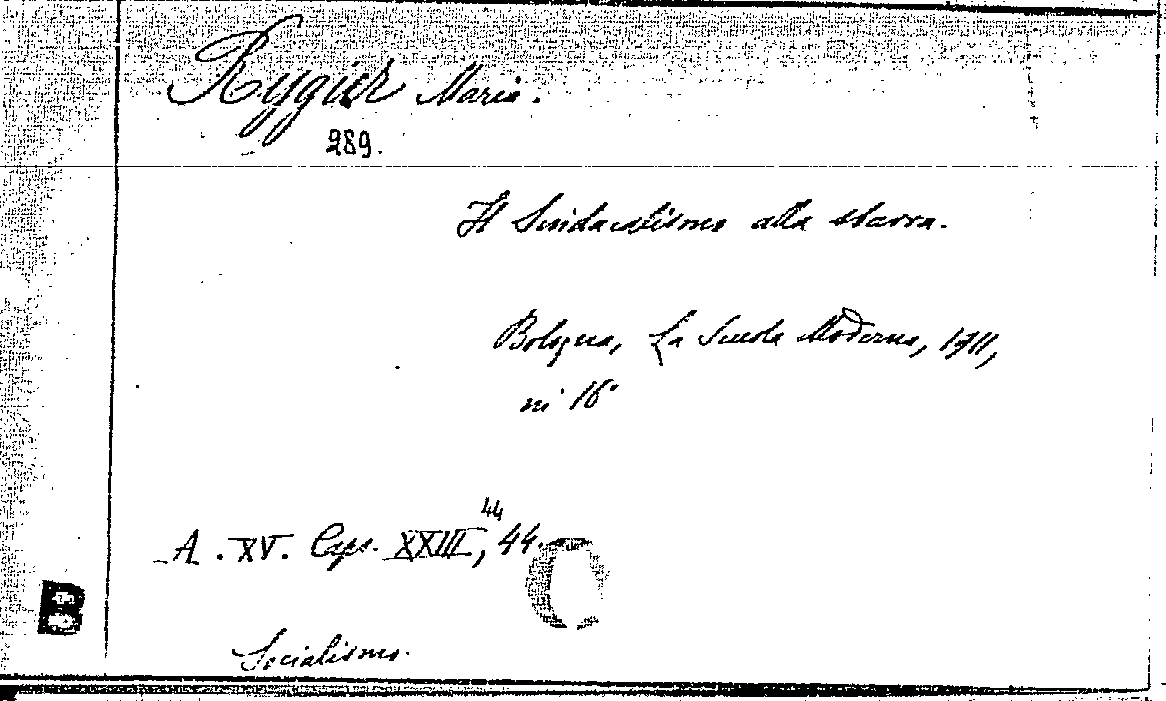 Rygier Maria.
289.
Il Sindacalismo alla sbarra.
Bologna, La Scuola Moderna, 1911,
in 16°
44
A. XV. Caps. XXIII, 44.
C
B
Socialismo.